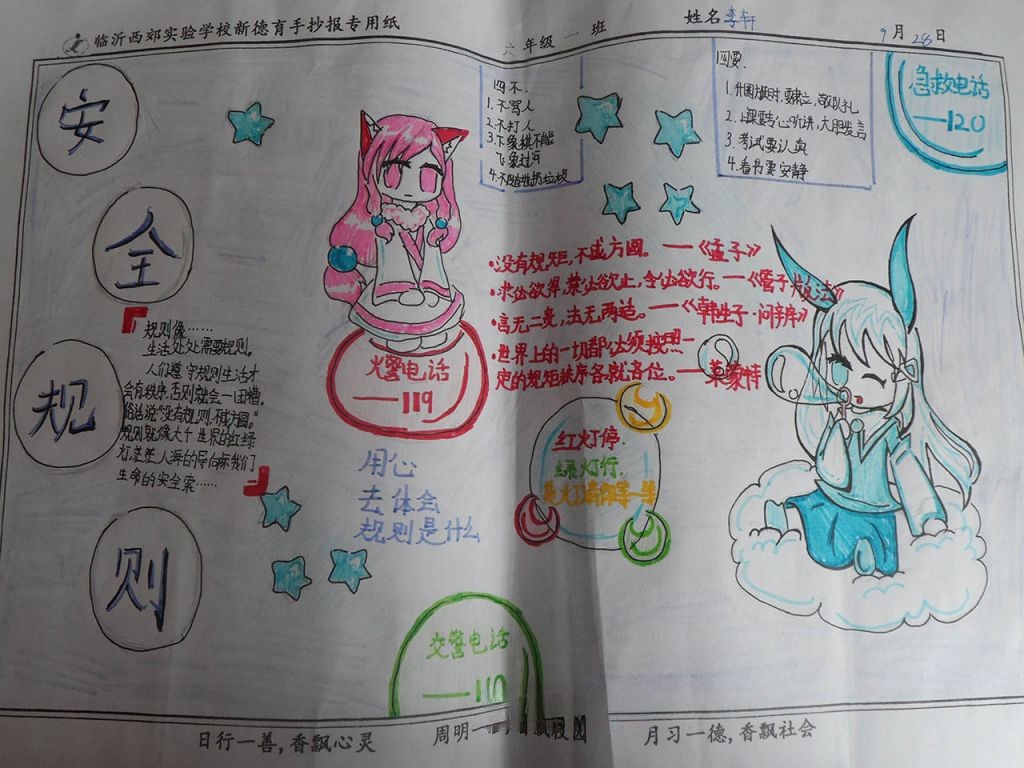 临沂西郊实验学校新德育手抄报专用纸
六年级一班
姓名李轩
9月28日
安
全
规
则
四不.
1.不骂人
2.不打人
3.下象棋不能
飞象过河
四要.
2.上课要专心听讲,大胆发言
3.考试要认真
4.看书要安静
急救电话
—120
·没有规矩,不成方圆。—《孟子》
·求必欲得,禁必欲止,令必欲行。—《管子·法法》
·言无二贵,法无两适。—《韩非子·问辩》
·世界上的一切都必须按照一
定的规矩秩序各就各位。—莱蒙特
规则像……
生活处处需要规则。
人们遵守规则生活才
会有秩序,否则就会一团糟.
俗话说"没有规则,不成方圆."
规则就像大千世界的红绿
灯,茫茫人海的导向标,我们
生命的安全索……
火警电话
—119
用心
去体会
规则是什么
红灯停.
绿灯行,
黄灯请你等一等
交警电话
—110
日行一善,香飘心灵
周明一
月习一德,香飘社会